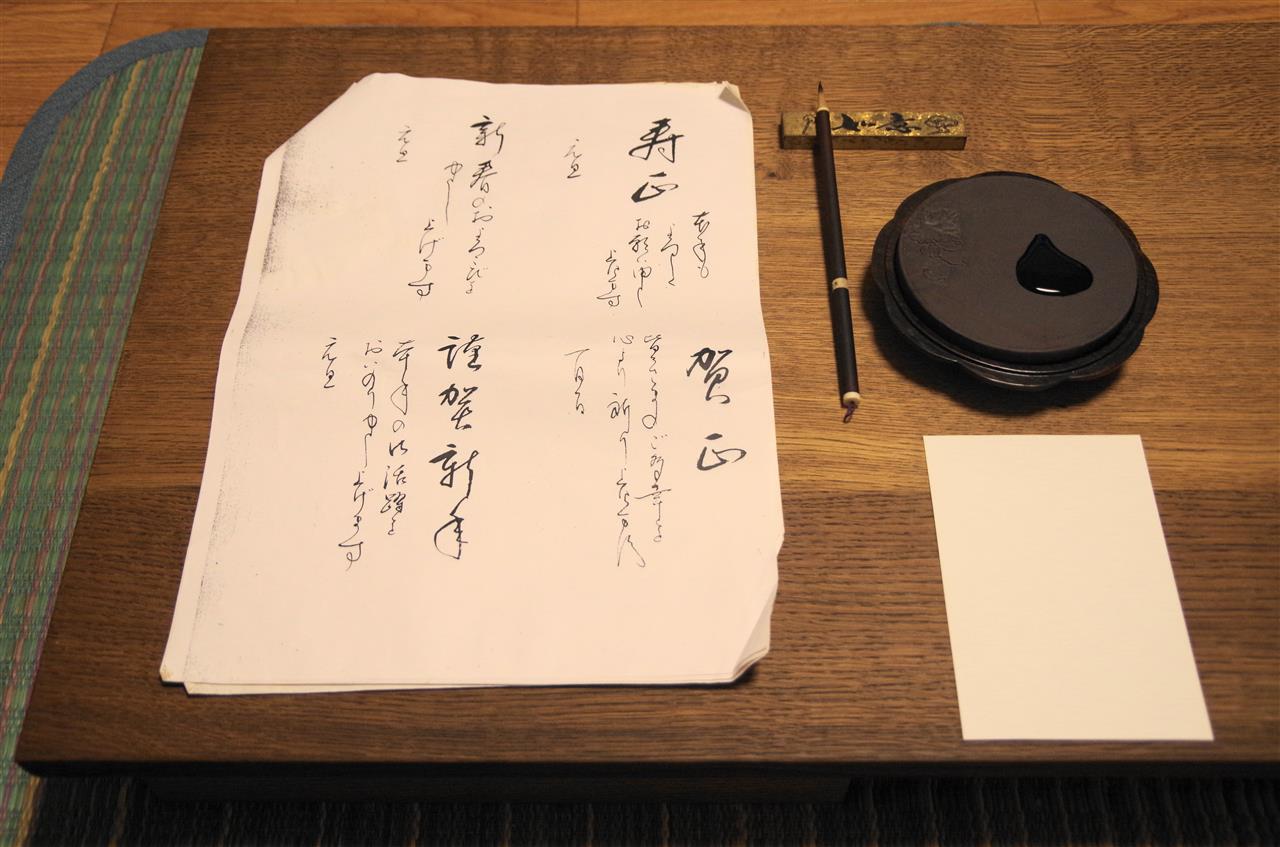 寿正
本年も
よろしく
お願い申し
上げます
元旦
新春のおよろこびを
申し
上げます
元旦
賀正
皆々さまのご多幸を
心より祈り上げます
一月一日
謹賀新年
本年の御活躍を
おいのり申し上げます
元旦